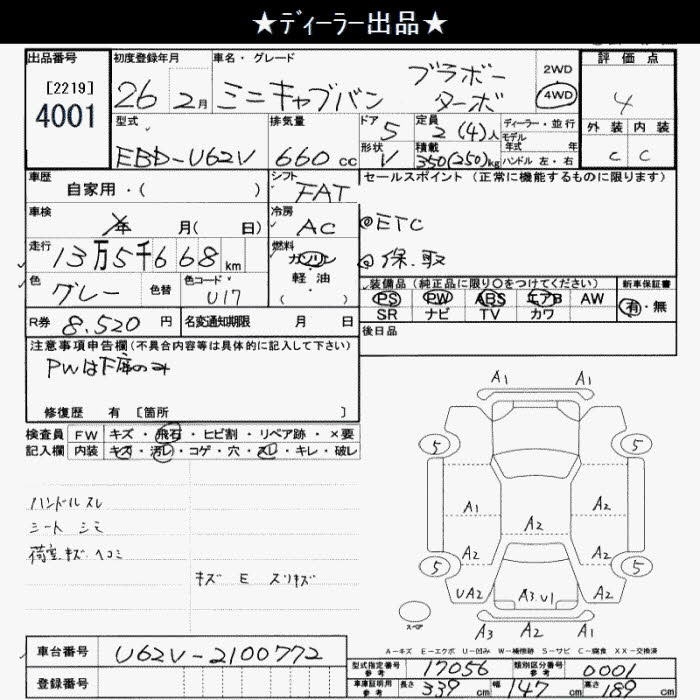 ★ディーラー出品★
出品番号
[2219]
4001
初度登録年月
26 2月
車名・グレード
ミニキャブバン
ブラボー
ターボ
2WD
4WD
評価点
4
外装 内装
C C
型式
EBD-U62V
排気量
660 cc
ドア
5
形状
V
定員
2 (4)人
積載
350(250)kg
ディーラー・並行
モデル
年式 年
ハンドル 左・右
車歴
自家用・( )
シフト
FAT
セールスポイント(正常に機能するものに限ります)
◎ETC
◎保.取
車検
年 月( 日)
冷房
AC
走行
13万5千668 km
燃料
ガソリン
軽油
・( )
色
グレー
色替
色コード
U17
装備品(純正品に限り○をつけてください)
PS PW ABS エアB AW
SR ナビ TV カワ
新車保証書
有・無
R券 8.520 円
名変通知期限 月 日
後日品
注意事項申告欄(不具合内容等は具体的に記入して下さい)
PWは下席のみ
修復歴 有 [箇所 ]
検査員
記入欄
FW キズ・飛石・ヒビ割・リペア跡・×要
内装 キズ・汚レ・コゲ・穴・スレ・キレ・破レ
ハンドルスレ
シート シミ
荷室キズ ヘコミ
キズ E スリキズ
A1 A1
5 5
A1 A2
A2
A2 A2
5 5
UA2 A3.U1 A2
スペア
A3 A2 A1
A-キズ E-エクボ U-凹み W-補修跡 S-サビ C-腐食 XX-交換済
車台番号
U62V-2100772
登録番号
型式指定番号
参考
17056
類別区分番号
参考
0001
車庫証明用
参考
長さ 339 cm 幅 147 cm 高さ 189 cm